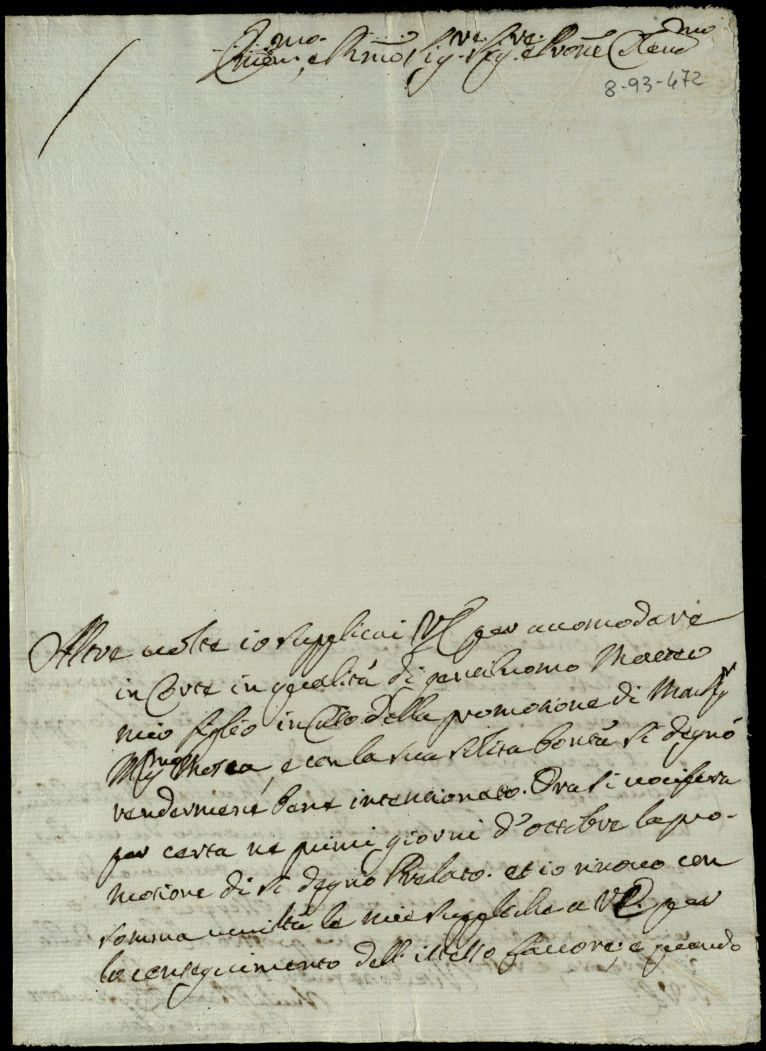 Emo. e Rmo. Sigre. Sigre. e Prone Colendmo
8-93-472
Altre volte io supplicai VE per accomodare
in Corte in qualità di gentilhuomo Matteo
mio figlio in caso della promotione di Monsigr
, e con la sua solita bontà si degnò
rendermene bene intentionato. Ora si vocifera
per certa ne primi giorni d'ottobre la pro-
motione di sì degno Prelato. et io rinovo con
somma umiltà le mie suppliche a VE. per
lo conseguimento dell'istesso favore; e quando